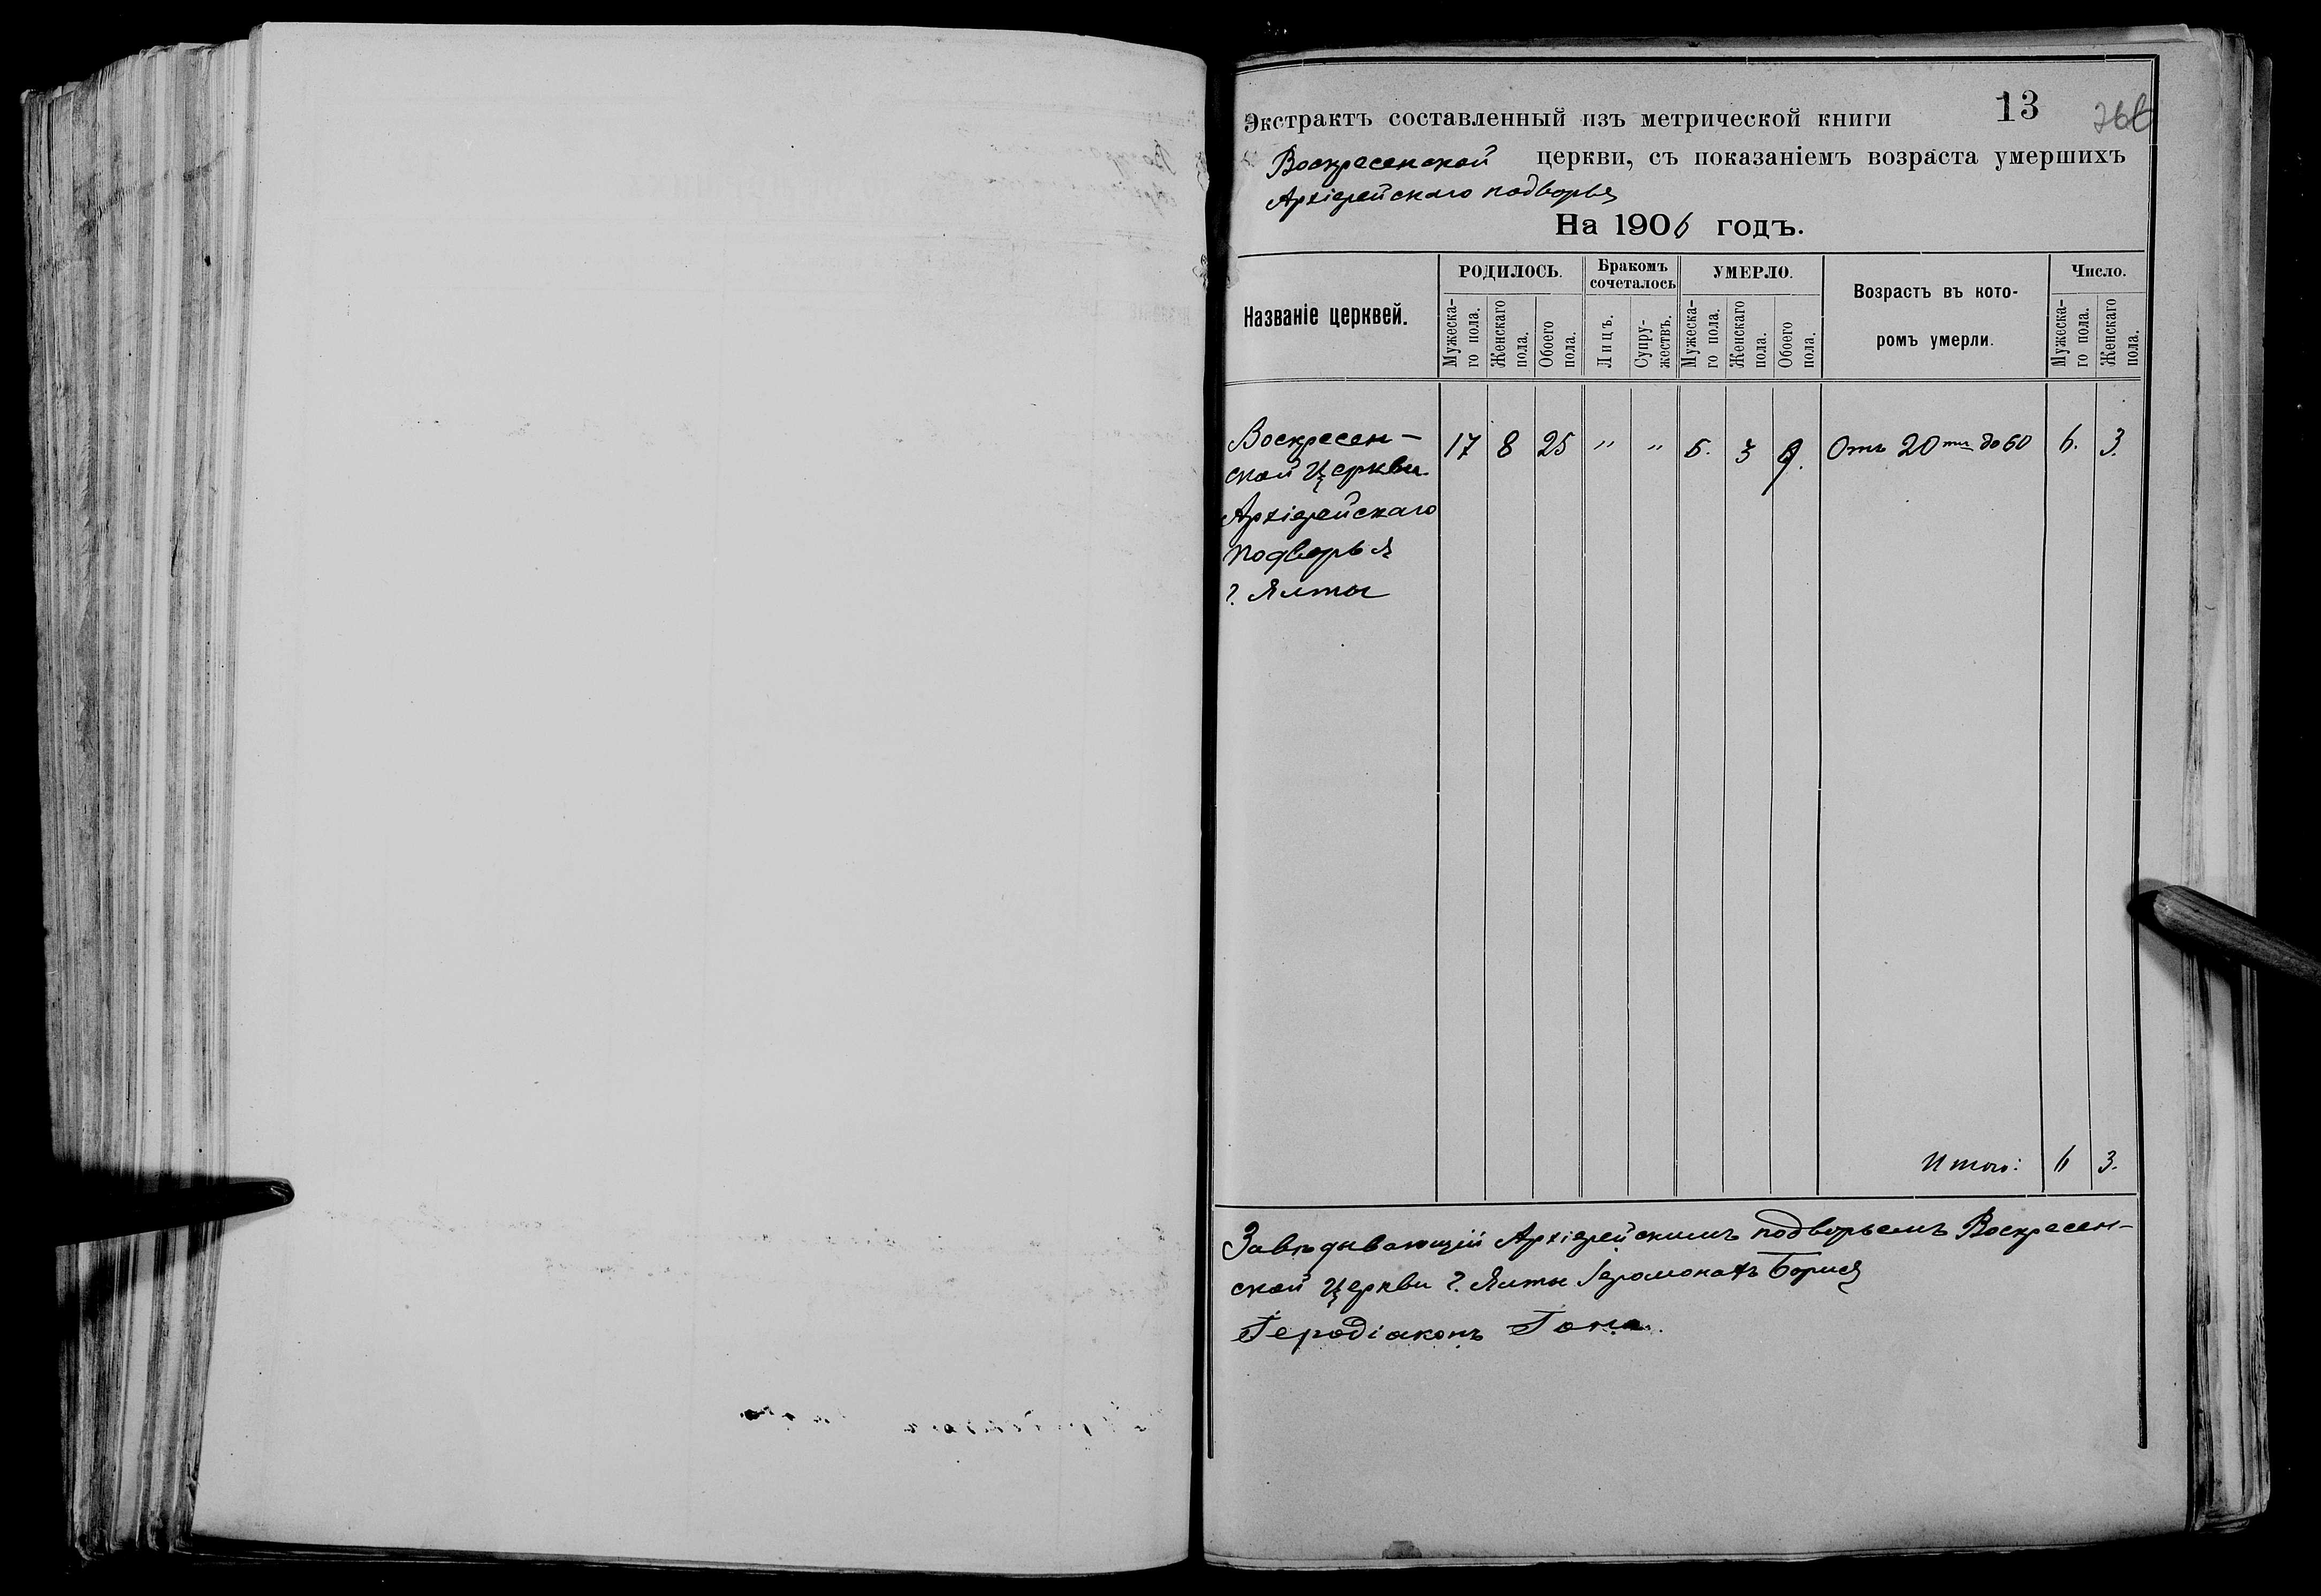 13
Экстрактъ составленный изъ метрической книги
Воскресенской церкви, съ показаніемъ возраста умершихъ
Архіерейскаго подворья
На 1906 годъ.
Названіе церквей.
РОДИЛОСЬ.
Мужеска-
го пола.
Женскаго
пола.
Обоего
пола.
Бракомъ
сочеталось
Лицъ.
Супру-
жествъ.
УМЕРЛО.
Мужеска-
го пола.
Женскаго
пола.
Обоего
пола.
Возрастъ въ кото-
ромъ умерли.
Число.
Мужеска-
го пола.
Женскаго
пола.
Воскресен- 17 8 25 " " 6. 3 9. Отъ 20 ти до 60 6. 3.
ской Церкви
Архіерейскаго
подворья
г. Ялты
Итого: 6 3.
Завѣдывающій Архіерейскимъ подворьемъ Воскресен-
ской Церкви г. Ялты Іеромонахъ Борисъ
Іеродіаконъ Іона.